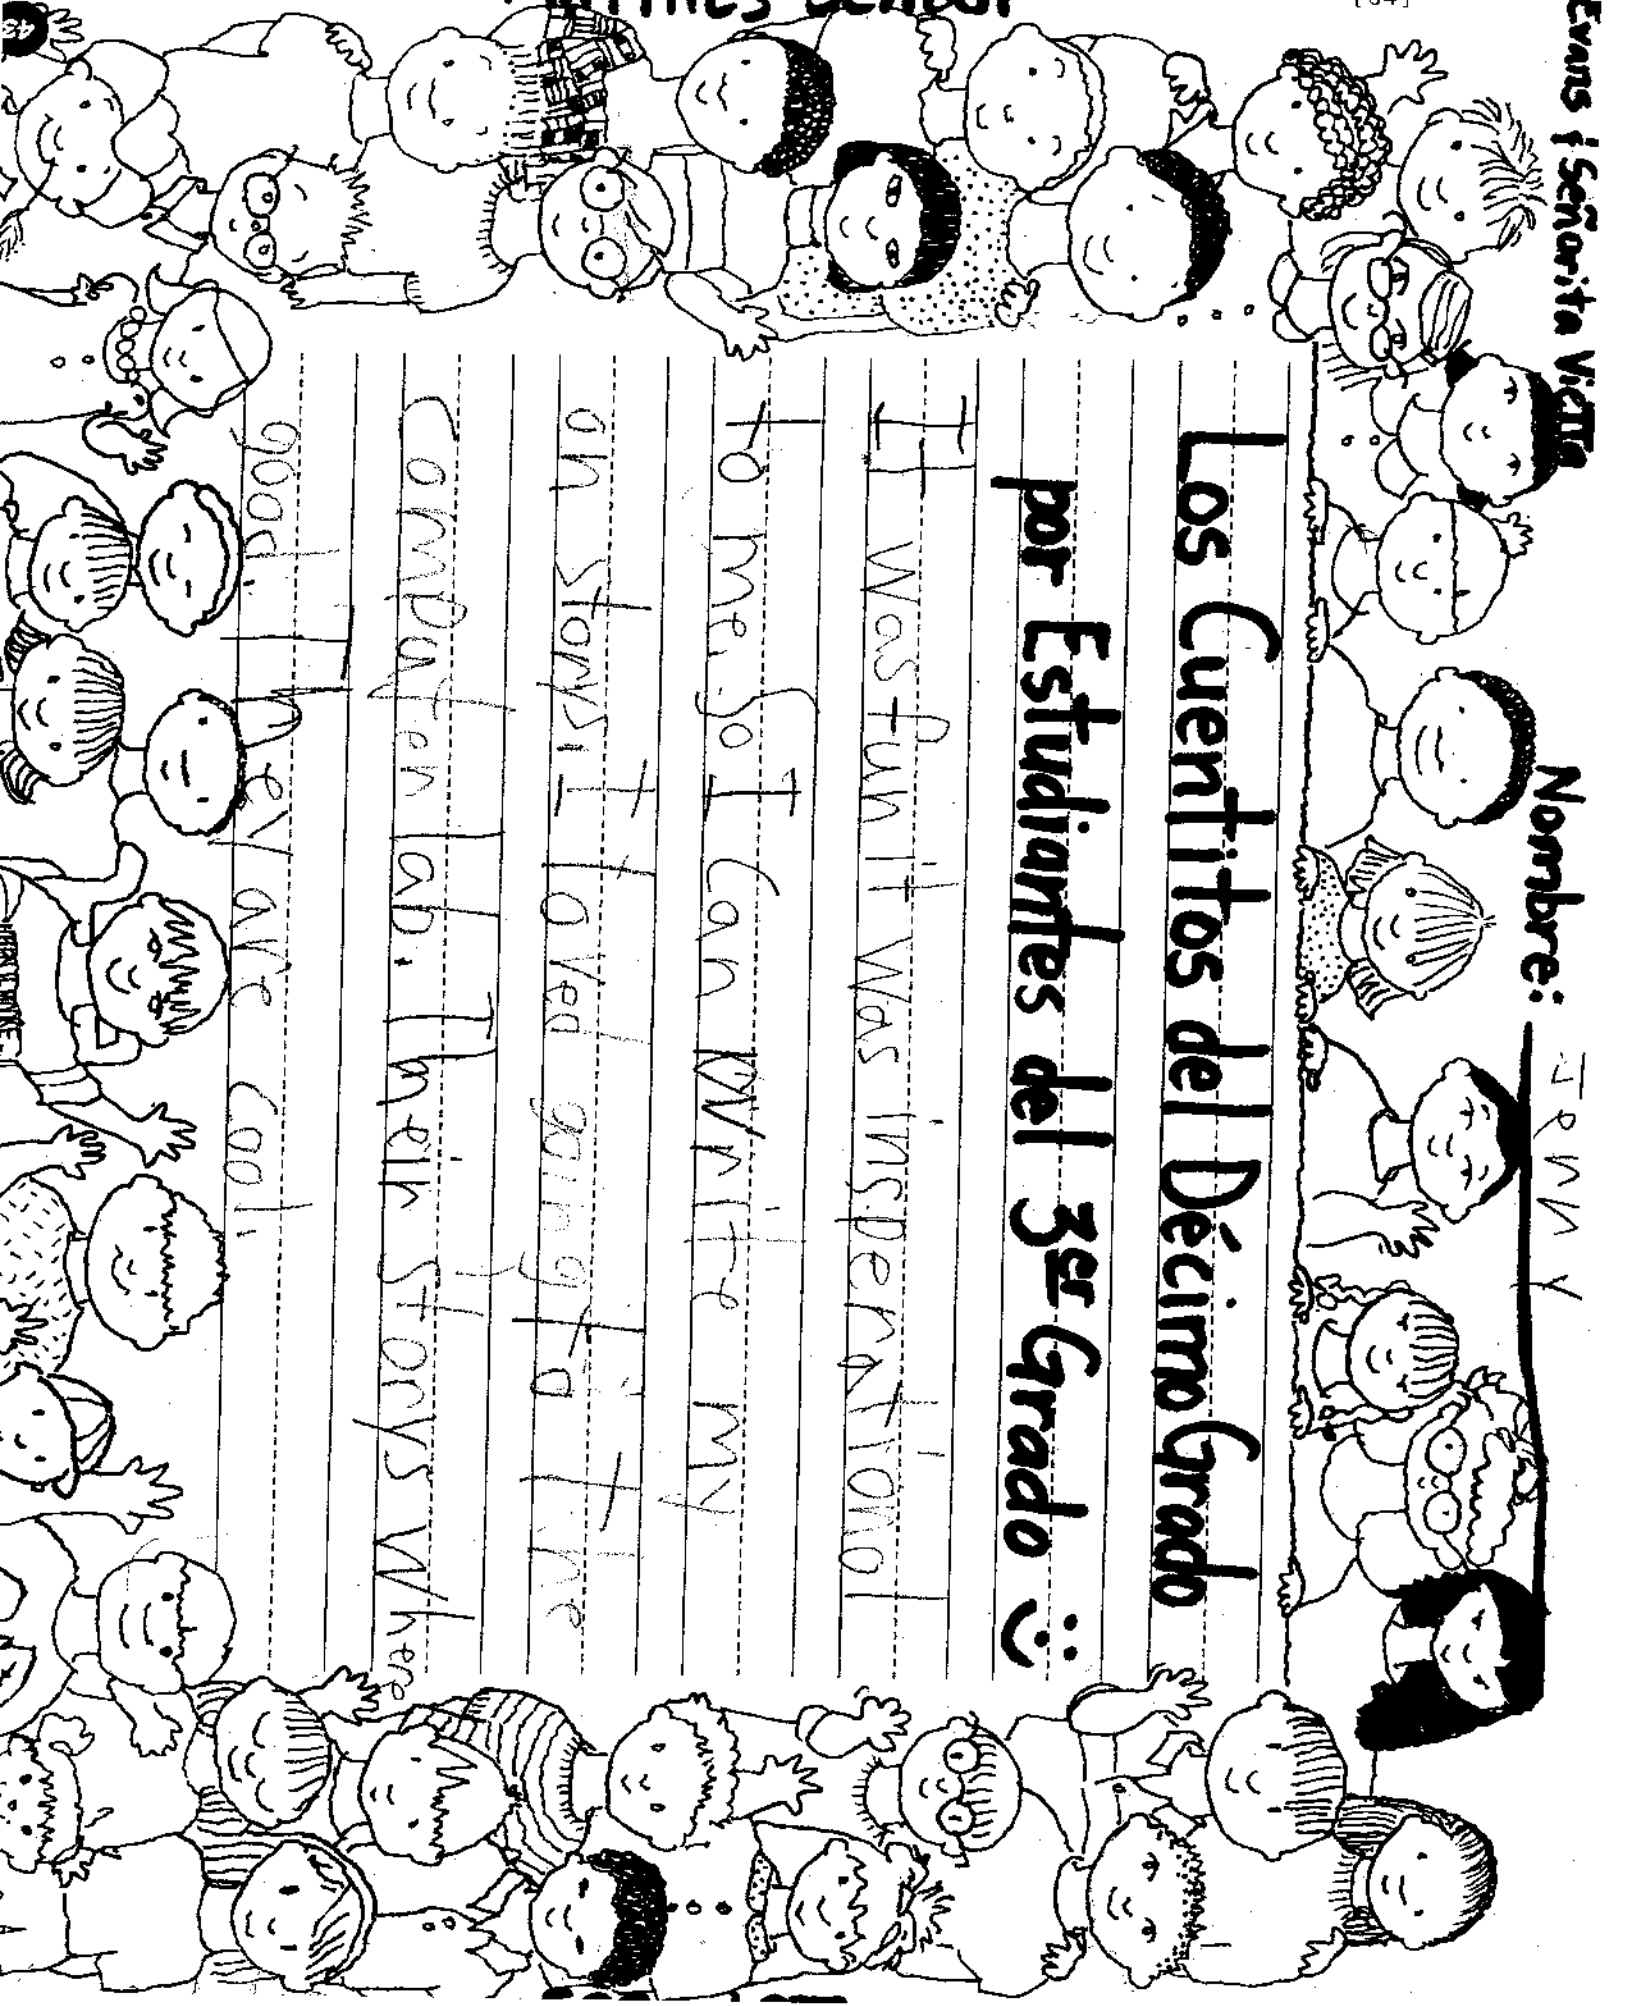 Evans ¡Señorita
Nombre: JENNY
Los Cuentitos del Décimo Grado
por Estudiantes del 3er Grado
It was fun it was insperational
to me. So I can write my
on storys. I loved going to the
computer lab. Their storys where
good. They are cool.